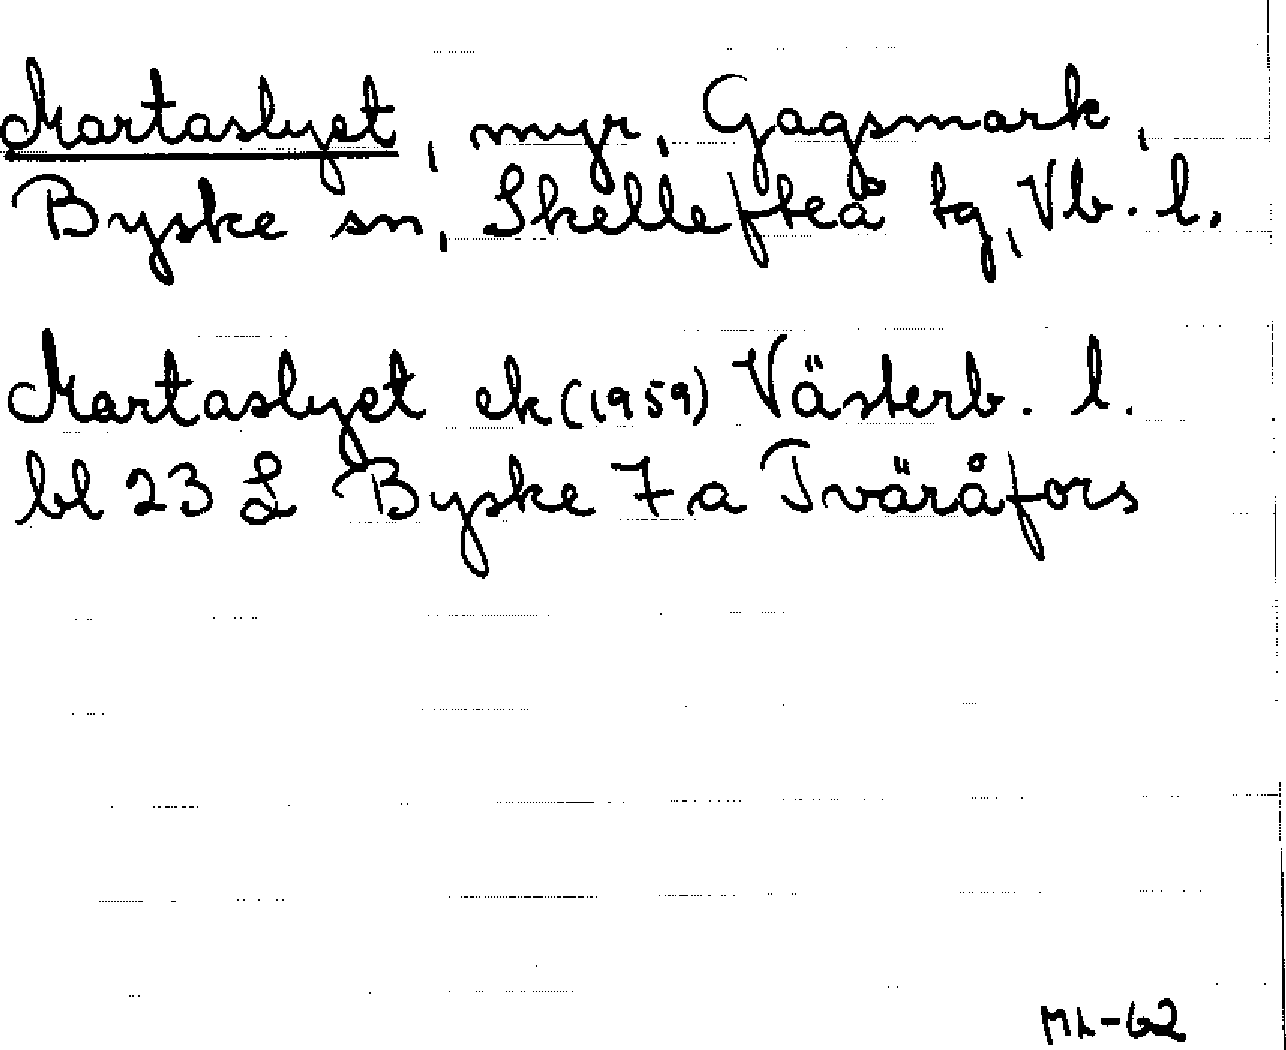 Martaslyet, myr, Gagsmark,
Byske sn, Skellefteå tg, Vb. l.
Martaslyet ek (1959) Västerb. l.
bl 23 L Byske 7 a Tväråfors
ML-62